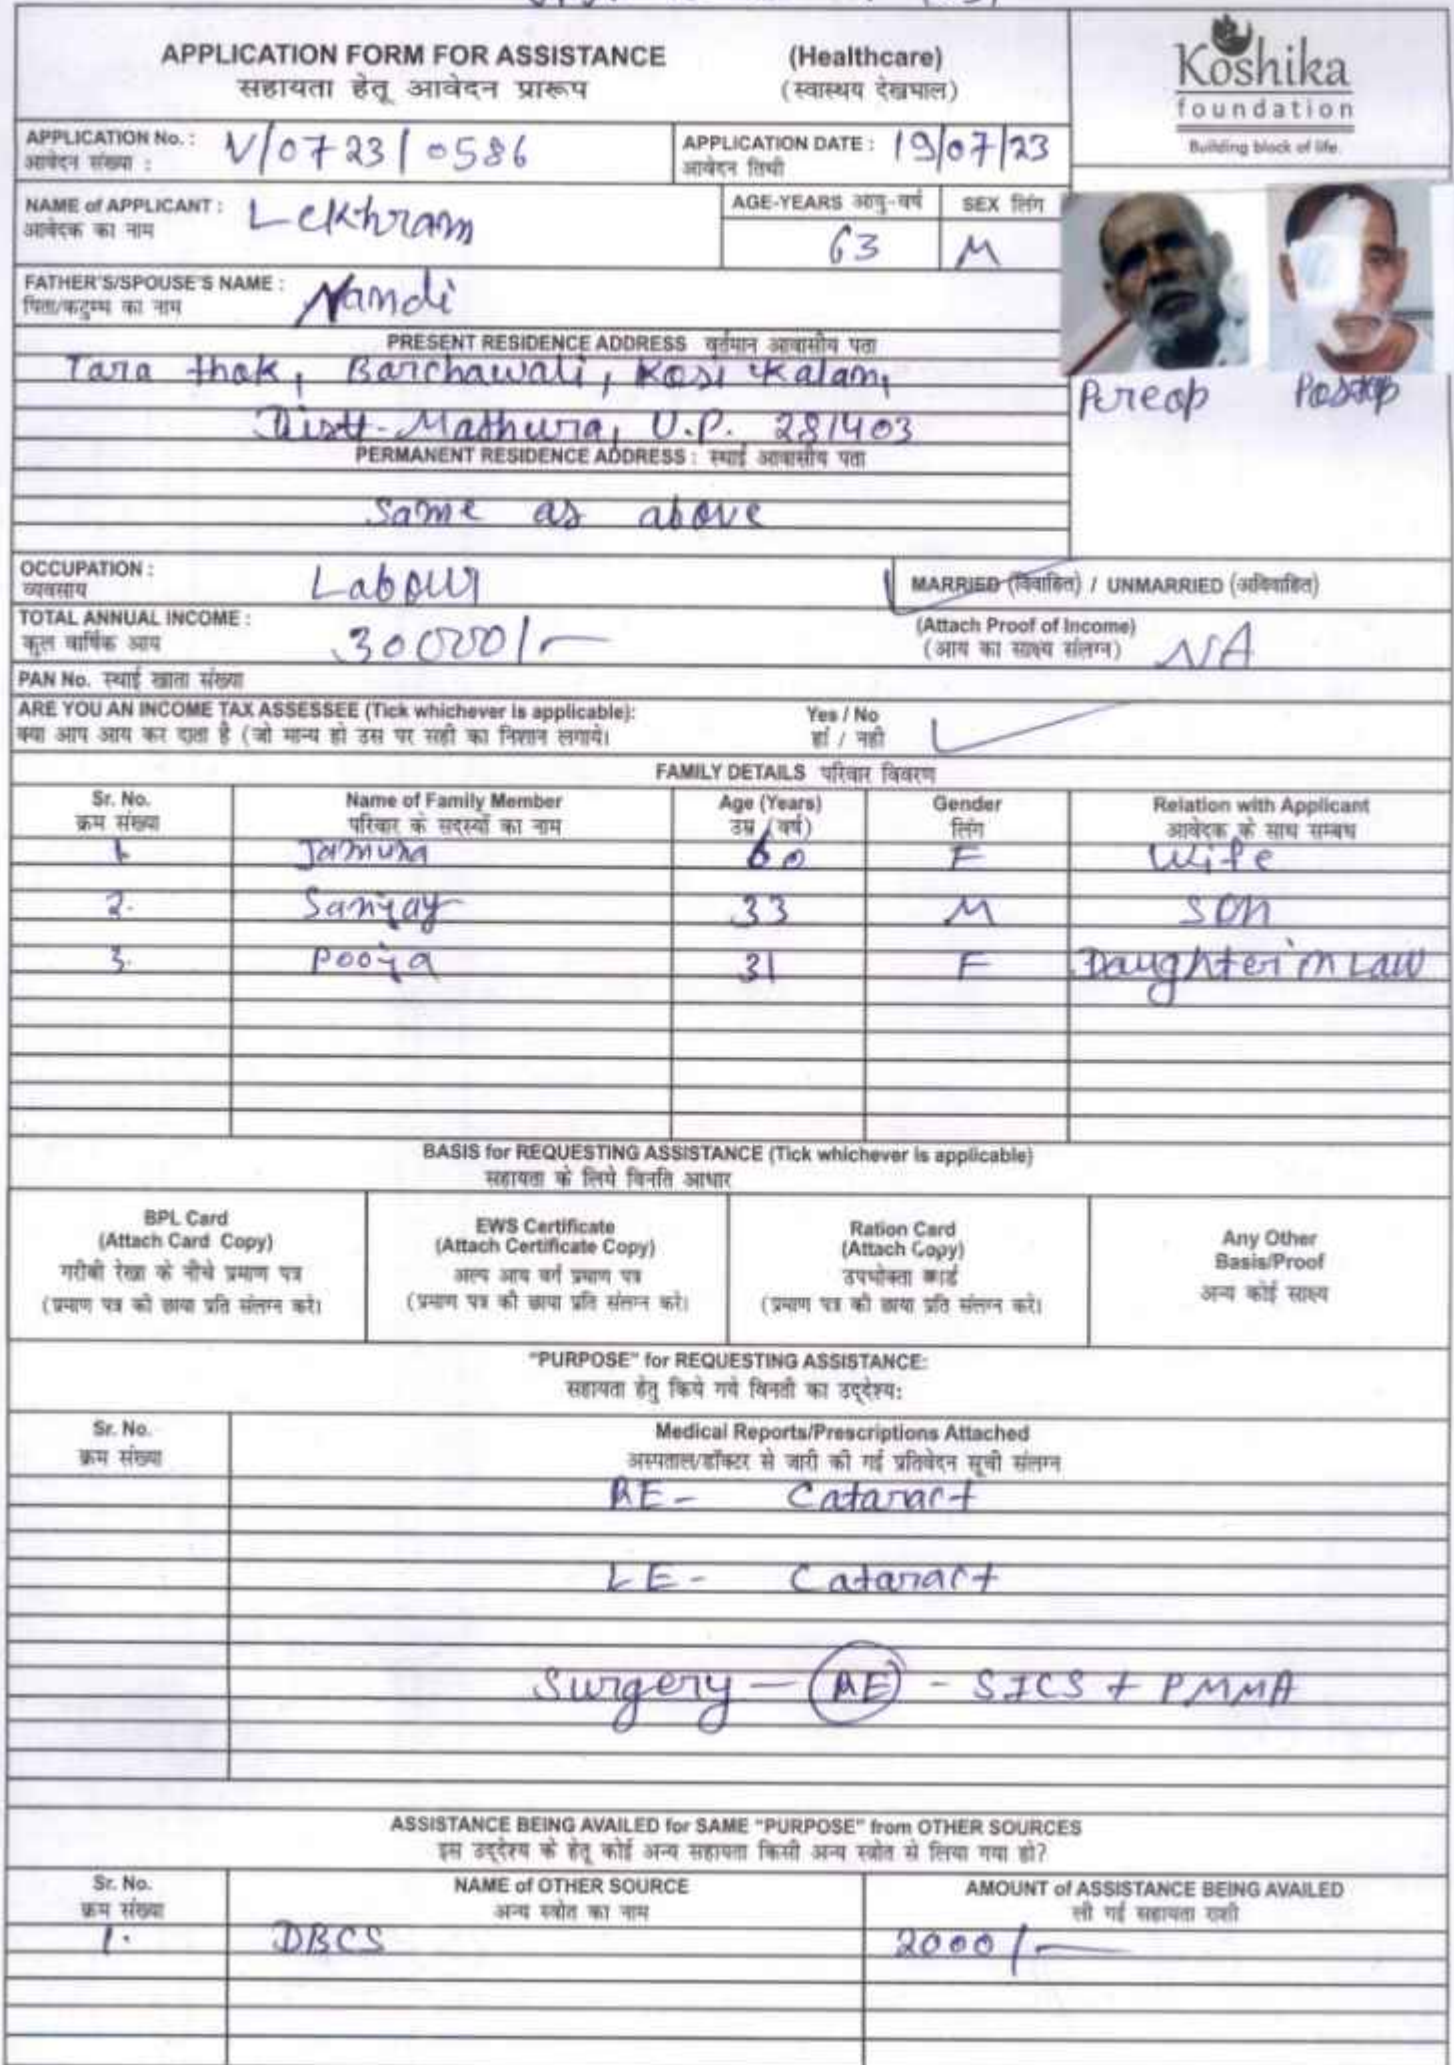 APPLICATION FORM FOR ASSISTANCE (Healthcare)
सहायता हेतू आवेदन प्रारूप (स्वास्थय देखभाल)
Koshika
foundation
Building block of life.
APPLICATION No. : V/0723/0586
आवेदन संख्या :
APPLICATION DATE : 19/07/23
आवेदन तिथी
NAME of APPLICANT : Lekhram
आवेदक का नाम
AGE-YEARS आयु-वर्ष 63
SEX लिंग M
FATHER'S/SPOUSE'S NAME : Nandi
पिता/कटुम्ब का नाम
Preop Postop
PRESENT RESIDENCE ADDRESS वर्तमान आवासीय पता
Tara thok, Barchawali, Kosi Kalan,
Distt-Mathura, U.P. 281403
PERMANENT RESIDENCE ADDRESS : स्थाई आवासीय पता
Same as above
OCCUPATION : Labour
व्यवसाय
MARRIED (विवाहित) / UNMARRIED (अविवाहित)
TOTAL ANNUAL INCOME : 30000/-
कुल वार्षिक आय
(Attach Proof of Income) NA
(आय का साक्ष्य संलग्न)
PAN No. स्थाई खाता संख्या
ARE YOU AN INCOME TAX ASSESSEE (Tick whichever is applicable): Yes / No
क्या आप आय कर दाता है (जो मान्य हो उस पर सही का निशान लगाये। हां / नही
FAMILY DETAILS परिवार विवरण
Sr. No. Name of Family Member Age (Years) Gender Relation with Applicant
क्रम संख्या परिवार के सदस्यों का नाम उम्र (वर्ष) लिंग आवेदक के साथ सम्बध
1. Jamuna 60 F Wife
2. Sanjay 33 M Son
3. Pooja 31 F Daughter in Law
BASIS for REQUESTING ASSISTANCE (Tick whichever is applicable)
सहायता के लिये विनति आधार
BPL Card
(Attach Card Copy)
गरीबी रेखा के नीचे प्रमाण पत्र
(प्रमाण पत्र की छाया प्रति संलग्न करे।
EWS Certificate
(Attach Certificate Copy)
अल्प आय वर्ग प्रमाण पत्र
(प्रमाण पत्र की छाया प्रति संलग्न करे।
Ration Card
(Attach Copy)
उपभोक्ता कार्ड
(प्रमाण पत्र की छाया प्रति संलग्न करे।
Any Other
Basis/Proof
अन्य कोई साक्ष्य
"PURPOSE" for REQUESTING ASSISTANCE:
सहायता हेतु किये गये विनती का उद्देश्य:
Sr. No. Medical Reports/Prescriptions Attached
क्रम संख्या अस्पताल/डॉक्टर से जारी की गई प्रतिवेदन सूची संलग्न
RE- Cataract
LE- Cataract
Surgery - RE - SICS + PMMA
ASSISTANCE BEING AVAILED for SAME "PURPOSE" from OTHER SOURCES
इस उद्देश्य के हेतू कोई अन्य सहायता किसी अन्य स्त्रोत से लिया गया हो?
Sr. No. NAME of OTHER SOURCE AMOUNT of ASSISTANCE BEING AVAILED
क्रम संख्या अन्य स्त्रोत का नाम ली गई सहायता राशी
1. DBCS 2000/-